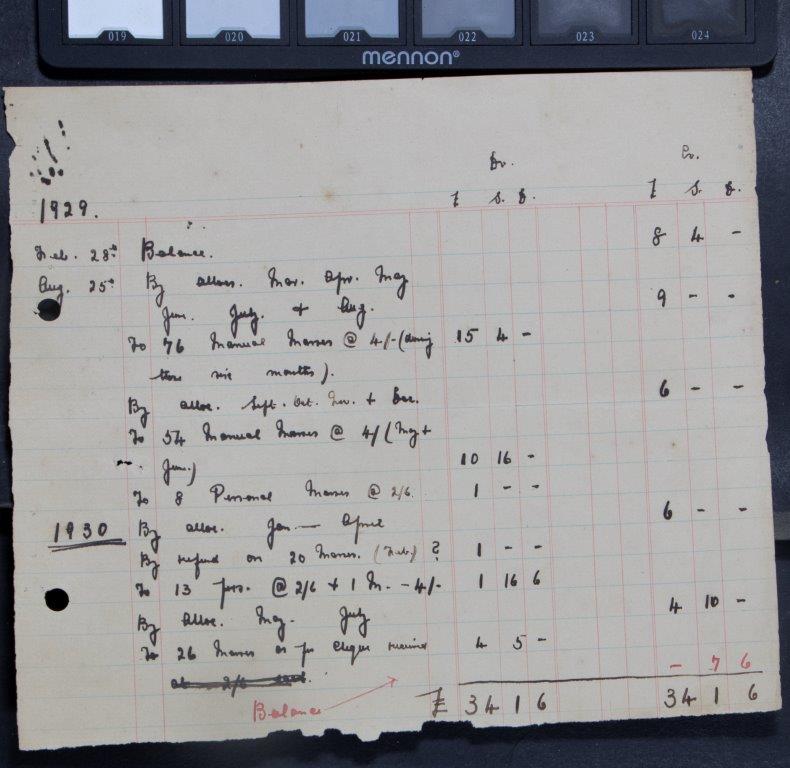 019 020 021 022 023 024
mennon®
Dr. Cr.
£ S. D. £ S. D.
1929.
Feb. 28th Balance. 8 4 -
Aug. 25th By allow. Mar. Apr. May
Jun. July. + Aug. 9 - -
To 76 Manual Masses @ 4/- (during 15 4 -
these six months).
By alloc. Sept. Oct. Nov. + Dec. 6 - -
To 54 Manual Masses @ 4/ (May +
Jun.) 10 16 -
To 8 Personal Masses @ 2/6. 1 - -
1930 By alloc. Jan — April 6 - -
By refund on 20 Masses. (Feb.) ? 1 - -
To 13 pers. @ 2/6 + 1 M. - 4/- 1 16 6
By Alloc. May - July 4 10 -
To 26 Masses as per cheque received 4 5 -
at 2/6 - 7 6
Balance £ 34 1 6 34 1 6